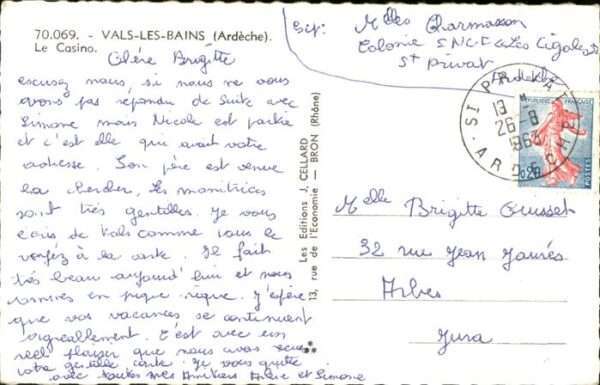 70.069. - VALS-LES-BAINS (Ardèche).
Le Casino.
Chère Brigitte
excusez nous, si nous ne vous
avons pas répondu de suite avec
Simone mais Nicole est partie
et c'est elle qui avait votre
adresse. Son père est venue
la chercher, les monitrices
sont très gentilles. Je vous
écris de Vals comme vous le
voyez à la carte. Il fait
très beau aujourd'hui et nous
sommes en pique nique. J'espère
que vos vacances se continuent
agréablement. C'est avec un
réel plaisir que nous avons reçu
votre gentille carte. Je vous quitte
avec toutes mes Amitiés et Simone
Les Editions J. CELLARD
13, rue de l'Economie — BRON (Rhône)
Exp: Melles Charmasson
Colonie SNCF "Les Cigales"
St Privat
Ardèche
ST PRIVAT
13 H
26-8
1963
ARDECHE
REPUBLIQUE FRANCAISE
0,20
POSTES
Melle Brigitte Guisset
32 rue Jean Jaurès
Arbois
Jura